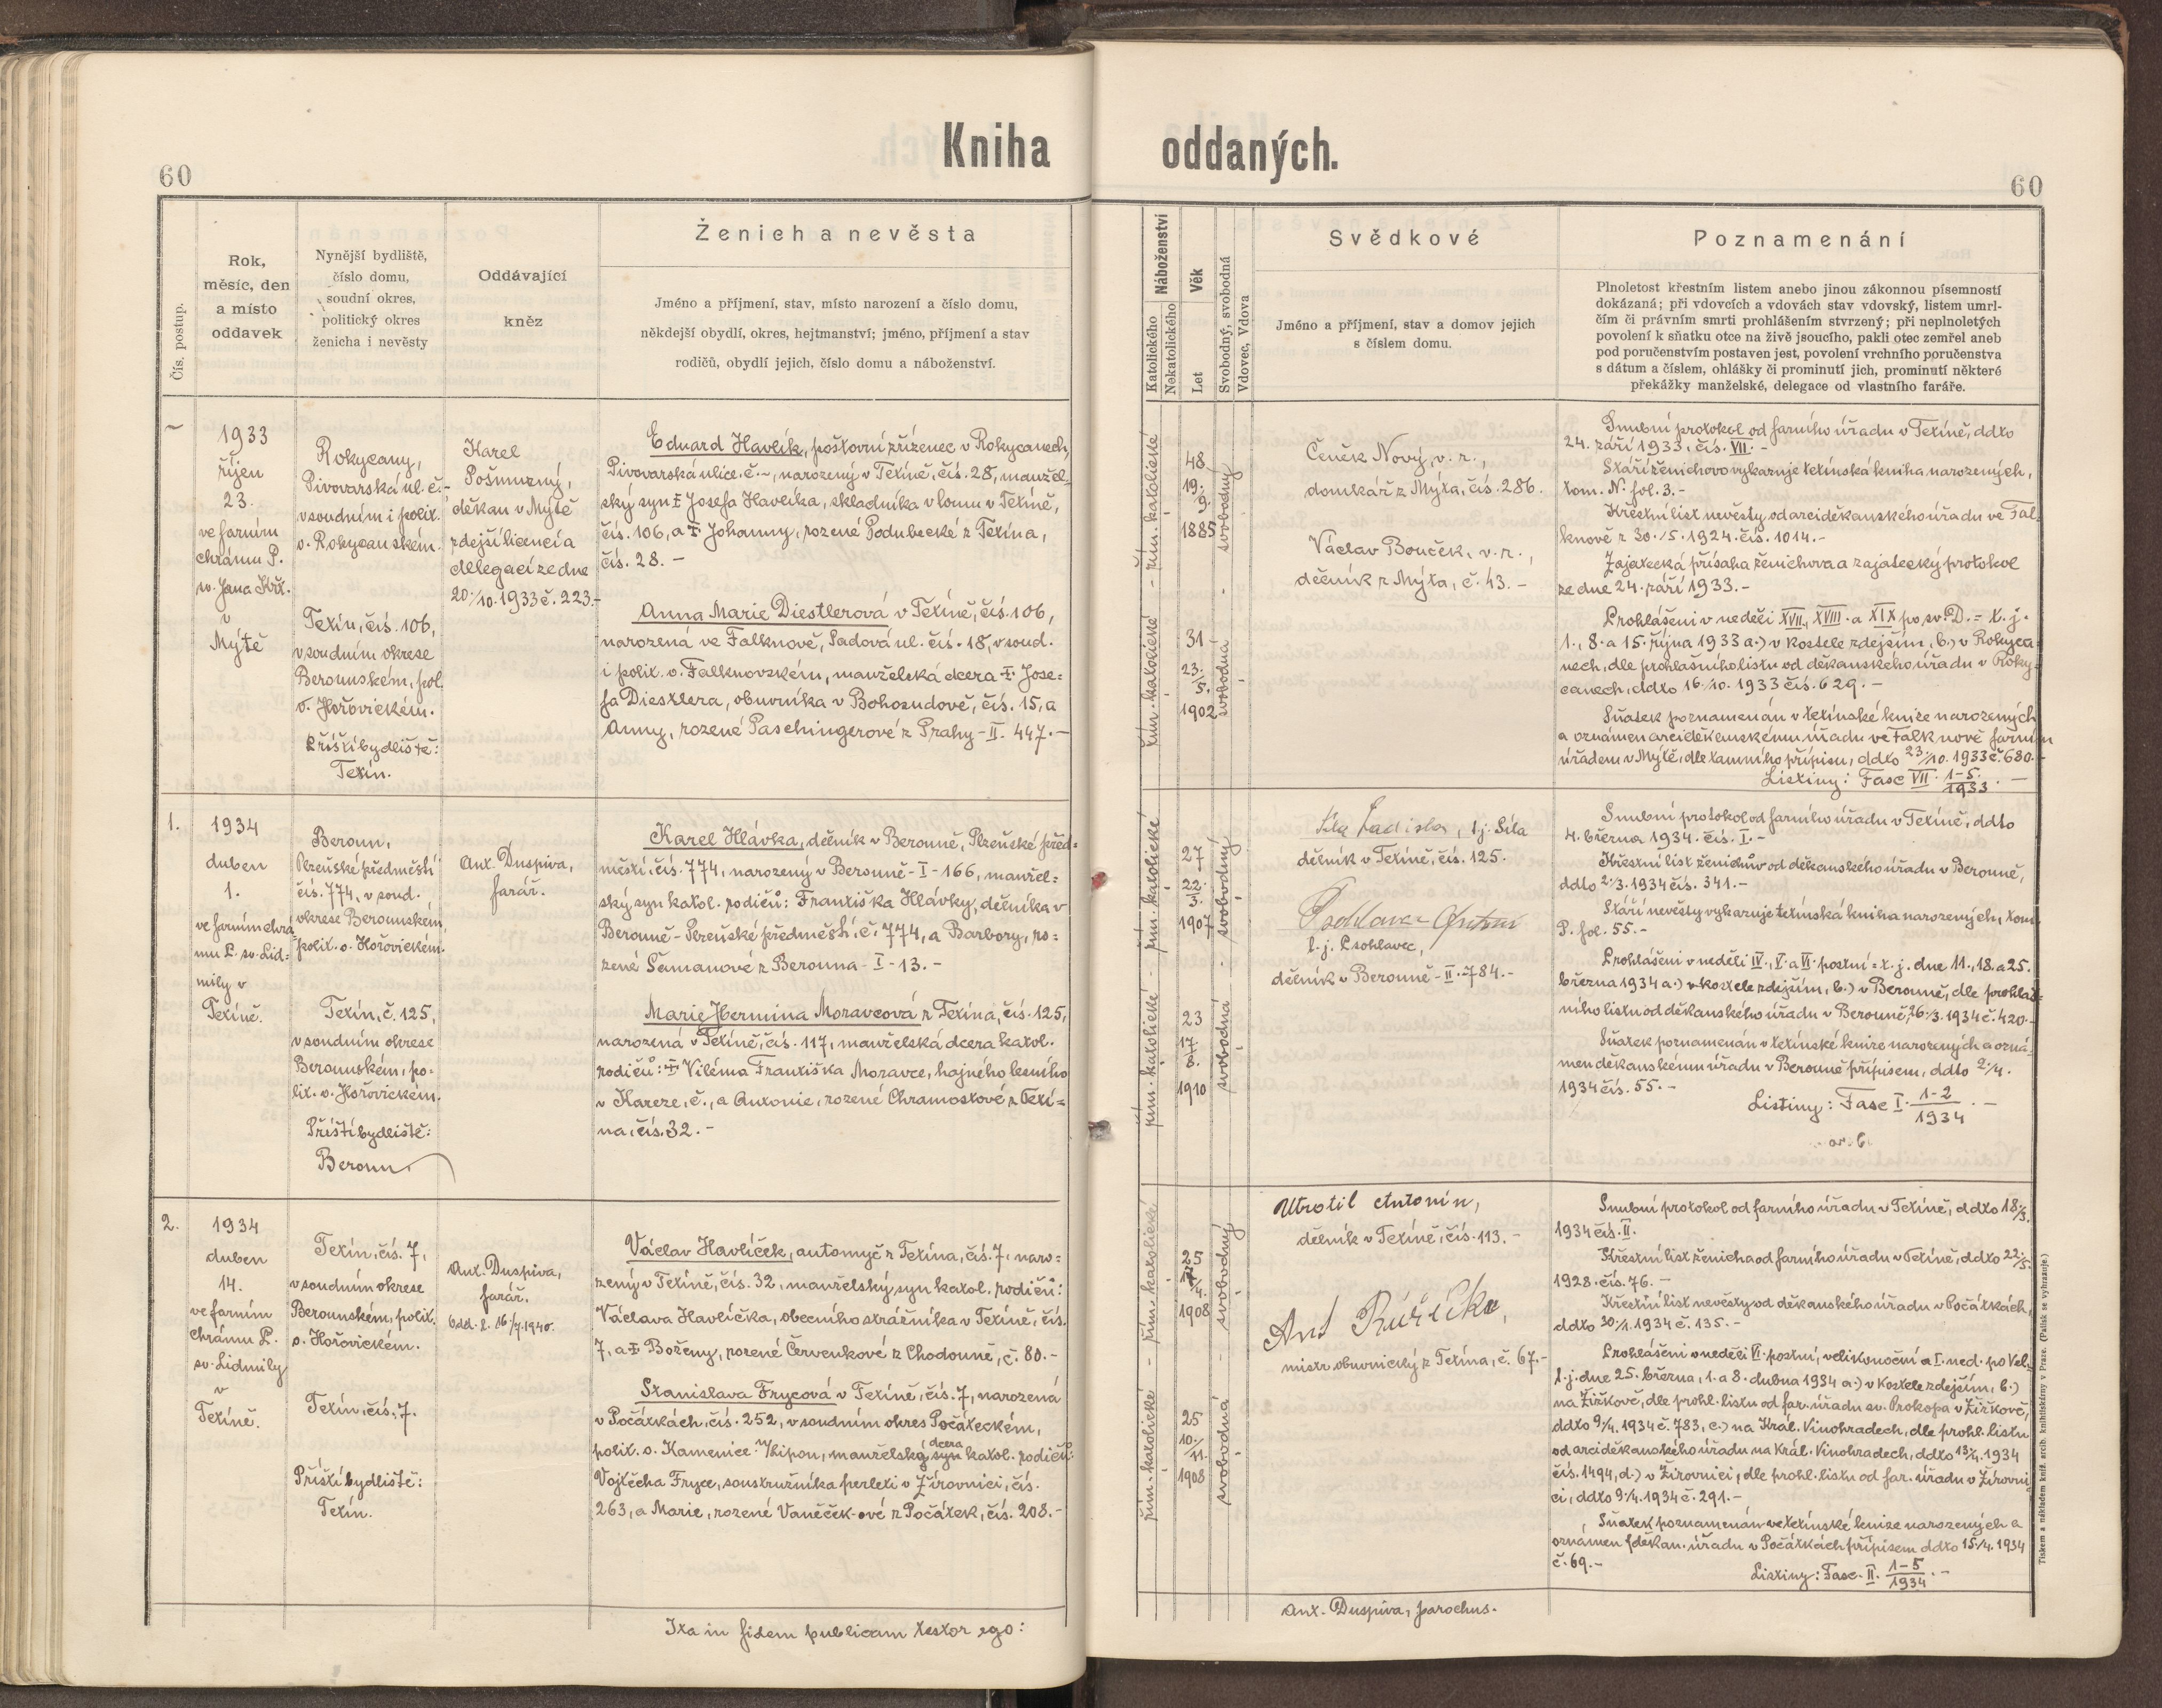 Kniha oddaných.
60
60
Čís. postup.
Rok,
měsíc, den
a místo
oddavek
Nynější bydliště,
číslo domu,
soudní okres,
politický okres
ženicha i nevěsty
Oddávající
kněz
Ženich a nevěsta
Jméno a příjmení, stav, místo narození a číslo domu,
někdejší obydlí, okres, hejtmanství; jméno, příjmení a stav
rodičů, obydlí jejich, číslo domu a náboženství.
Náboženství
Katolického
Nekatolického
Věk
Let
Svobodný, svobodná
Vdovec, Vdova
Svědkové
Jméno a příjmení, stav a domov jejich
s číslem domu.
Poznamenání
Plnoletost křestním listem anebo jinou zákonnou písemností
dokázaná; při vdovcích a vdovách stav vdovský, listem umrl-
čím či právním smrti prohlášením stvrzený; při neplnoletých
povolení k sňatku otce na živě jsoucího, pakli otec zemřel aneb
pod poručenstvím postaven jest, povolení vrchního poručenstva
s dátum a číslem, ohlášky či prominutí jich, prominutí některé
překážky manželské, delegace od vlastního faráře.
~
1933
říjen
23.
ve farním
chrámu P.
sv. Jana Křt.
v
Mýtě
Rokycany,
Pivovarská ul. č.-
v soudním i polit.
o. Rokycanském.
Tetín, čís. 106,
v soudním okrese
Berounském, pol.
o. Hořovickém.
Příští bydliště:
Tetín.
Karel
Pošmurný,
děkan v Mýtě
zdejší licencí a
delegací ze dne
20./10. 1933 č. 223.-
Eduard Havlík, poštovní zřízenec v Rokycanech,
Pivovarská ulice, č. ~, narozený v Tetíně, čís. 28, manžel-
ský syn ‡ Josefa Havlíka, skladníka v lomu v Tetíně,
čís. 106, a ‡ Johanny, rozené Podubecké z Tetína,
čís. 28. -
Anna Marie Diestlerová v Tetíně, čís. 106,
narozená ve Falknově, Sadová ul. čís. 18, v soud.
i polit. o. Falknovském, manželská dcera ‡ Jose-
fa Diestlera, obuvníka v Bohosudově, čís. 15, a
Anny, rozené Paschingerové z Prahy - II. 447. -
řím. katolické
48
19.
9.
1885
svobodný
řím. katolické
31
23.
5.
1902
svobodná
Čeněk Nový, v. r.,
domkář z Mýta, čís. 286.
Václav Bouček, v. r.,
dělník z Mýta, č. 43. -
Snubní protokol od farního úřadu v Tetíně, ddto
24. září 1933, čís. VII. -
Stáří ženichovo vykazuje tetínská kniha narozených,
tom. N. fol. 3. -
Křestní list nevěsty od arciděkanského úřadu ve Fal-
knově z 30./5. 1924. čís. 1014. -
Zajatecká přísaha ženichova a zajatecký protokol
ze dne 24. září 1933. -
Prohlášeni v neděli XVII., XVIII. a XIX po sv. D. = t. j.
1., 8. a 15. října 1933 a.) v kostele zdejším, b.) v Rokyca-
nech, dle prohlašního listu od děkanského úřadu v Roky-
canech, ddto 16./10. 1933 čís. 629. -
Sňatek poznamenán v tetínské knize narozených
a oznámen arciděkanskému úřadu ve Falknově farním
úřadem v Mýtě, dle tamního přípisu, ddto 23./10. 1933 č. 680. -
Listiny: Fasc VII. 1-5./1933. -
1.
1934
duben
1.
ve farním chrá-
mu P. sv. Lid-
mily v
Tetíně.
Beroun,
Plzeňské předměstí
čís. 774, v soud.
okrese Berounském,
polit. o. Hořovickém.
Tetín, č. 125,
v soudním okrese
Berounském, po-
lit. o. Hořovickém.
Příští bydliště:
Beroun.
Ant. Duspiva,
farář.
Karel Hlávka, dělník v Berouně, Plzeňské před-
městí, čís. 774, narozený v Berouně - I - 166, manžel-
ský syn katol. rodičů: Františka Hlávky, dělníka v
Berouně - Plzeňské předměstí, č. 774, a Barbory, ro-
zené Šamanové z Berouna - I - 13. -
Marie Hermina Moravcová z Tetína, čís. 125,
narozená v Tetíně, čís. 117, manželská dcera katol.
rodičů: ‡ Viléma Františka Moravce, hajného lesního
v Kareze, č., a Antonie, rozené Chramostové z Tetí-
na, čís. 32. -
řím. katolické
27
22.
3.
1907
svobodný
řím. katolické
23
17.
8.
1910
svobodná
Síla Ladislav, t. j. Síla
dělník v Tetíně, čís. 125.
Psohlavec Antonín
t. j. Psohlavec,
dělník v Berouně - II. - 784. -
Snubní protokol od farního úřadu v Tetíně, ddto
4. března 1934. čís. I. -
Křestní list ženichův od děkanského úřadu v Berouně,
ddto 2./3. 1934 čís. 341. -
Stáří nevěsty vykazuje tetínská kniha narozených, tom.
P. fol. 55. -
Prohlášeni v neděli IV., V. a VI. postní = t. j. dne 11., 18. a 25.
března 1934 a.) v kostele zdejším, b.) v Berouně, dle prohlaš-
ního listu od děkanského úřadu v Berouně, 26./3. 1934 č. 420. -
Sňatek poznamenán v tetínské knize narozených a ozná-
men děkanskému úřadu v Berouně přípisem, ddto 2./4.
1934 čís. 55. -
Listiny: Fasc I. 1-2/1934. -
2.
1934
duben
14.
ve farním
chrámu P.
sv. Lidmily
v
Tetíně.
Tetín, čís. 7,
v soudním okrese
Berounském, polit.
o. Hořovickém.
Tetín, čís. 7.
Příští bydliště:
Tetín.
Ant. Duspiva,
farář.
Odd. l. 16/7. 1940.
Václav Havlíček, automyč z Tetína, čís. 7, naro-
zený v Tetíně, čís. 32, manželský syn katol. rodičů:
Václava Havlíčka, obecního strážníka v Tetíně, čís.
7, a ‡ Boženy, rozené Červenkové z Chodouně, č. 80. -
Stanislava Frycová v Tetíně, čís. 7, narozená
v Počátkách, čís. 252, v soudním okres Počáteckém,
polit. o. Kamenice n/Lipou, manželská dcera syn katol. rodičů:
Vojtěcha Fryce, soustružníka perleti v Žirovnici, čís.
263, a Marie, rozené Vaněček-ové z Počátek, čís. 208. -
řím. katolické
25
17.
4.
1908
svobodný
řím. katolické
25
10.
11.
1908
svobodná
Antonín,
dělník v Tetíně, čís. 113. -
Ant Růžička,
mistr obuvnický z Tetína, č. 67. -
Snubní protokol od farního úřadu v Tetíně, ddto 18./3.
1934 čís. II.
Křestní list ženicha od farního úřadu v Tetíně, ddto 22./5.
1928. čís. 76. -
Křestní list nevěsty od děkanského úřadu v Počátkách,
ddto 30./1. 1934 č. 135. -
Prohlášeni v neděli VI. postní, velikonoční a I. ned. po Vel.
t. j. dne 25. března, 1. a 8. dubna 1934 a.) v kostele zdejším, b.)
na Žižkově, dle prohl. listu od far. úřadu sv. Prokopa v Žižkově,
ddto 9./4. 1934 č. 783, c.) na Král. Vinohradech, dle prohl. listu
od arciděkanského úřadu na Král. Vinohradech, ddto 13./4. 1934
čís. 1494, d.) v Žirovnici, dle prohl. listu od far. úřadu v Žirovni-
ci, ddto 9./4. 1934 č. 291. -
Sňatek poznamenán ve tetínské knize narozených a
oznámen děkan. úřadu v Počátkách přípisem ddto 15./4. 1934
č. 69. -
Listiny: Fasc. II. 1-5/1934. -
Ita in fidem publicam testor ego:
Ant. Duspiva, parochus.
Tiskem a nákladem kníž. arcib. knihtiskárny v Praze. (Patisk se vyhrazuje.)